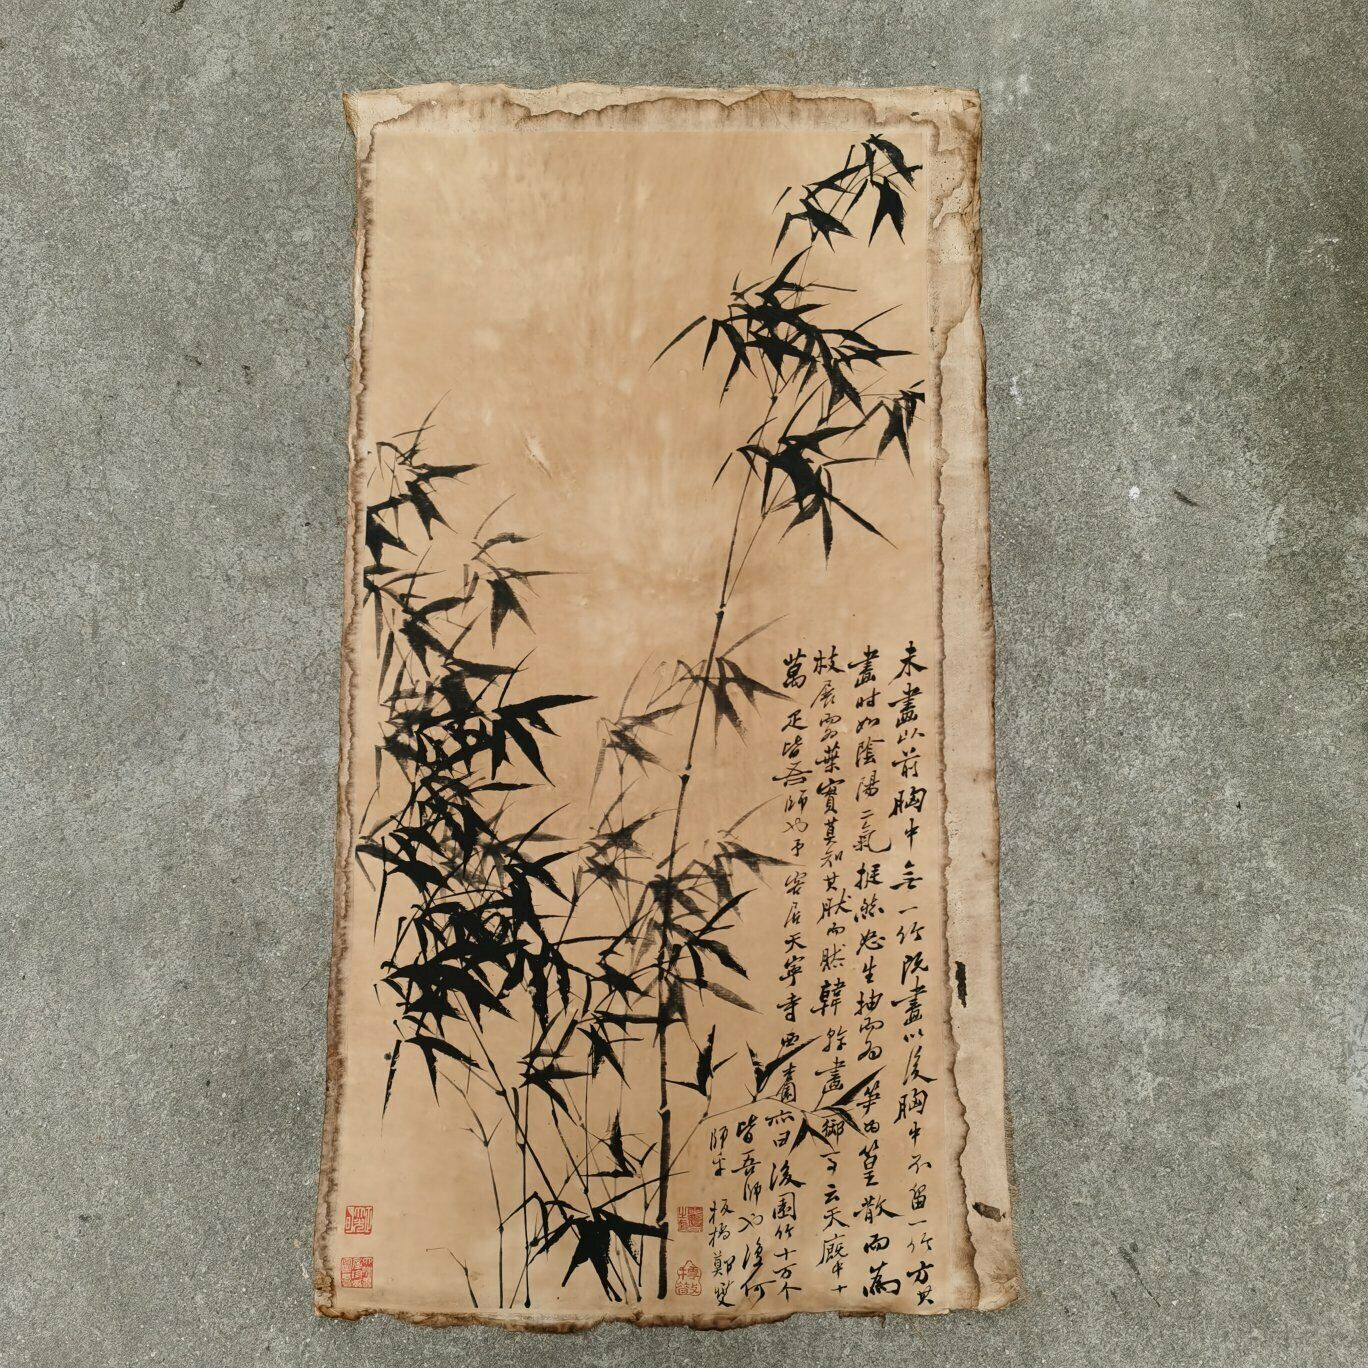 未畫以前胸中無一竹既畫以後胸中不留一竹方其
畫时如陰陽二氣挺然怒生抽而为笋为篁散而為
枝展而为葉實莫知其然而然韓幹畫御马云天廐中十
萬疋皆吾師也予客居天寧寺西
亦曰後園竹十万个
皆吾師也復何
師乎 板橋鄭燮